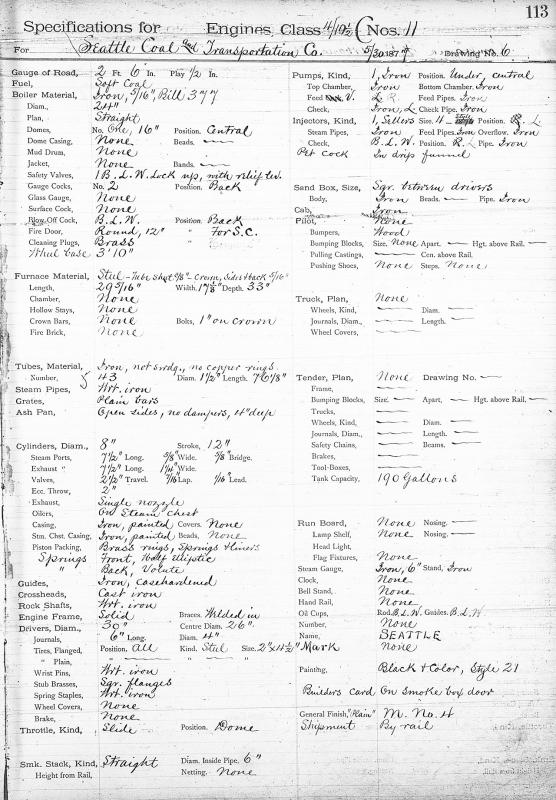 113
Specifications for Engines, Class 4/10½ C Nos. 11
For Seattle Coal and Transportation Co. 5/30 1877 Drawing No. 6
Gauge of Road, 2 Ft. 6 In. Play 1/2 In.
Fuel, Soft Coal
Boiler Material, Iron, 5/16", Bill 377
Diam., 24"
Plan, Straight
Domes, No. One, 16" Position. Central
Dome Casing, None Beads.
Mud Drum, None
Jacket, None Bands.
Safety Valves, 1 B.L.W. Lock up, with relief lev.
Gauge Cocks, No. 2 Position. Back
Glass Gauge, None
Surface Cock, None
Blow-Off Cock, B.L.W. Position. Back
Fire Door, Round, 12" " For S.C.
Cleaning Plugs, Brass
Wheel base 3'10"
Furnace Material, Steel - Tube Sheet 3/8" - Crown, sides & back 5/16"
Length, 29 5/16" Width, 17 1/8" Depth. 33"
Chamber, None
Hollow Stays, None
Crown Bars, None Bolts, 1" on crown
Fire Brick, None
Tubes, Material, Iron, not swdg., no copper rings
Number, 43 Diam. 1 1/2" Length. 76 1/8"
Steam Pipes, Wrt. iron
Grates, Plain bars
Ash Pan, Open sides, no dampers, 4" deep
Cylinders, Diam., 8" Stroke, 12"
Steam Ports, 7 1/2" Long. 5/8" Wide. 5/8" Bridge.
Exhaust " 7 1/2" Long. 1 1/4" Wide.
Valves, 2 1/2" Travel. 7/16" Lap. 1/16" Lead.
Ecc. Throw, 2"
Exhaust, Single nozzle
Oilers, On Steam chest
Casing, Iron, painted Covers. None
Stm. Chst. Casing, Iron, painted Beads, None
Piston Packing, Brass rings, Springs & liners
Springs Front, Half Elliptic
" Back, Volute
Guides, Iron, casehardened
Crossheads, Cast iron
Rock Shafts, Wrt. iron
Engine Frame, Solid Braces. Welded in
Drivers, Diam., 30" Centre Diam. 26"
Journals, 6" Long. Diam. 4"
Tires, Flanged, Position. All Kind. Steel Size. 2" x 4 1/2"
" Plain,
Wrist Pins, Wrt. iron
Stub Brasses, Sqr. flanges
Spring Staples, Wrt. iron
Wheel Covers, None
Brake, None
Throttle, Kind, Slide Position. Dome
Smk. Stack, Kind, Straight Diam. Inside Pipe. 6"
Height from Rail, Netting. None
Pumps, Kind, 1, Iron Position. Under, central
Top Chamber, Iron Bottom Chamber. Iron
Feed V. L R. Feed Pipes. Iron
Check, Iron, L Check Pipe. Iron
Injectors, Kind, 1, Sellers Size. 4 Position. R. L
Steam Pipes, Iron Feed Pipes. Iron Overflow. Iron
Check, B.L.W. Position. R. L Pipe. Iron
Pet Cock In drip funnel
Sand Box, Size, Sqr. between drivers
Body, Iron Beads. Pipe. Iron
Cab, Iron
Pilot, None
Bumpers, Wood
Bumping Blocks, Size. None Apart. Hgt. above Rail.
Pulling Castings, Cen. above Rail.
Pushing Shoes, None Steps. None
Truck, Plan, None
Wheels, Kind, Diam.
Journals, Diam., Length.
Wheel Covers,
Tender, Plan, None Drawing No.
Frame,
Bumping Blocks, Size. Apart, Hgt. above Rail.
Trucks,
Wheels, Kind, Diam.
Journals, Diam., Length.
Safety Chains, Beams.
Brakes,
Tool-Boxes,
Tank Capacity, 190 Gallons
Run Board, None Nosing.
Lamp Shelf, None Nosing.
Head Light,
Flag Fixtures, None
Steam Gauge, Iron, 6" Stand, Iron
Clock, None
Bell Stand, None
Hand Rail, None
Oil Cups, Rod. B.L.W. Guides. B.L.W
Number, None
Name, SEATTLE
Mark None
Painting, Black & Color, Style 21
Builders card On smoke box door
General Finish, "Plain" M. No. 4
Shipment By rail